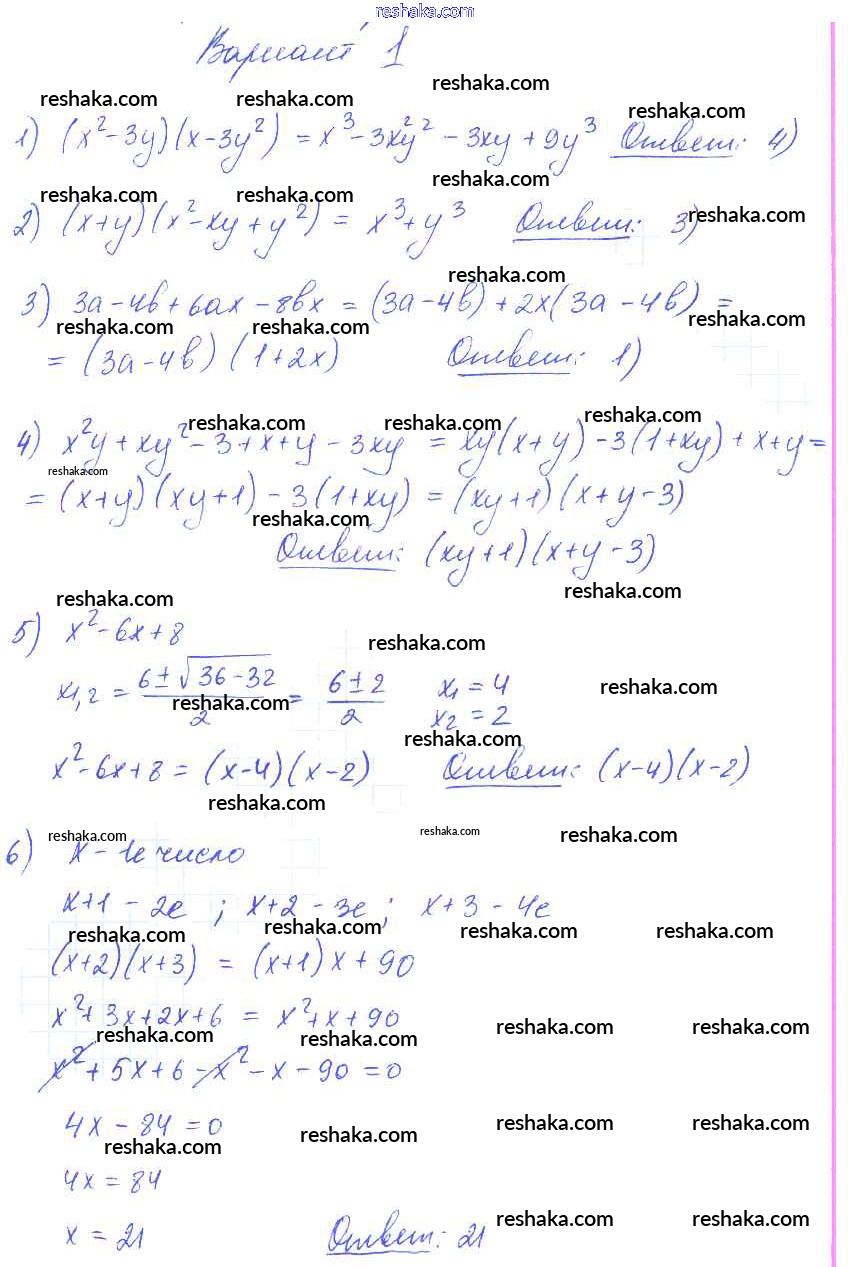 reshaka.com
Вариант 1
reshaka.com
reshaka.com reshaka.com reshaka.com
1) (x²-3y)(x-3y²) = x³-3x²y²-3xy+9y³ Ответ: 4)
reshaka.com
reshaka.com reshaka.com reshaka.com
2) (x+y)(x²-xy+y²) = x³+y³ Ответ: 3)
reshaka.com
3) 3a-4b+6ax-8bx = (3a-4b)+2x(3a-4b) =
reshaka.com reshaka.com reshaka.com
= (3a-4b)(1+2x) Ответ: 1)
reshaka.com reshaka.com reshaka.com
4) x²y+xy²-3+x+y-3xy = xy(x+y)-3(1+xy)+x+y=
reshaka.com
= (x+y)(xy+1)-3(1+xy) = (xy+1)(x+y-3)
reshaka.com
Ответ: (xy+1)(x+y-3)
reshaka.com reshaka.com
5) x²-6x+8
reshaka.com
x1,2 = (6±√36-32)/2 = (6±2)/2 x1=4
reshaka.com reshaka.com
x2=2
reshaka.com
x²-6x+8 = (x-4)(x-2) Ответ: (x-4)(x-2)
reshaka.com
reshaka.com reshaka.com reshaka.com
6) x - 1е число
x+1 - 2е ; x+2 - 3е ; x+3 - 4е
reshaka.com reshaka.com reshaka.com reshaka.com
(x+2)(x+3) = (x+1)x+90
x²+3x+2x+6 = x²+x+90
reshaka.com reshaka.com reshaka.com reshaka.com
x²+5x+6-x²-x-90=0
4x-84=0
reshaka.com reshaka.com reshaka.com reshaka.com
4x=84
reshaka.com reshaka.com
x=21 Ответ: 21